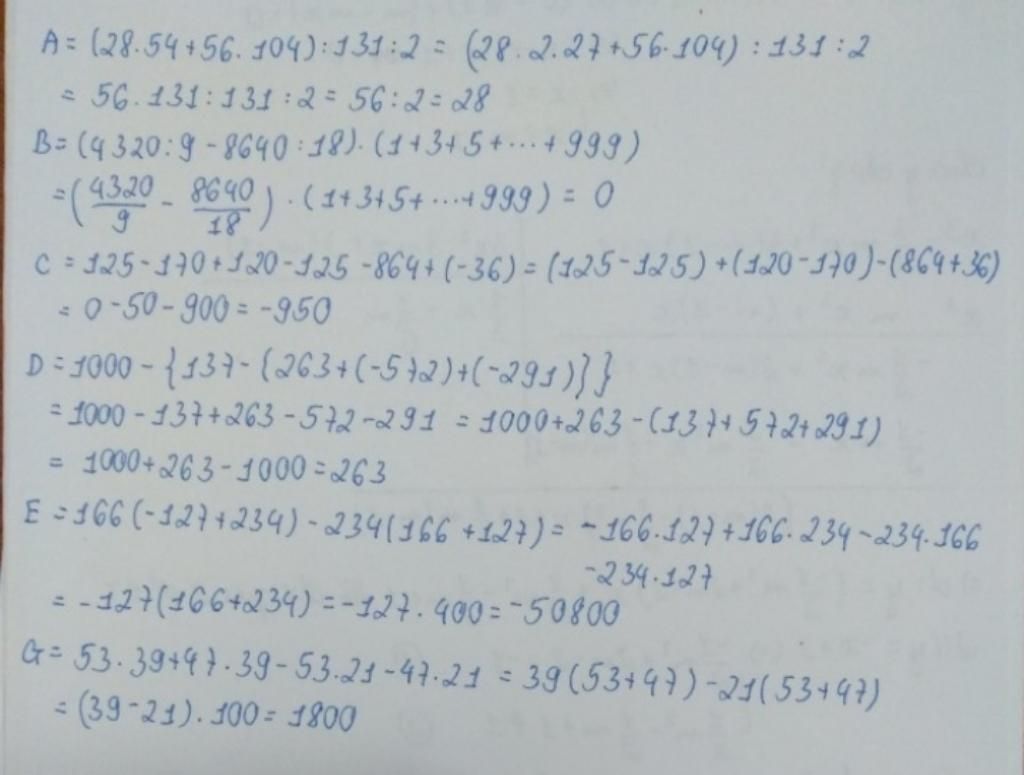 A = (28.54+56.104):131:2 = (28.2.27+56.104):131:2
= 56.131:131:2 = 56:2 = 28
B = (4320:9-8640:18).(1+3+5+...+999)
= (4320/9 - 8640/18).(1+3+5+...+999) = 0
C = 125-170+120-125-864+(-36) = (125-125)+(120-170)-(864+36)
= 0-50-900 = -950
D = 1000-{137-{263+(-572)+(-291)}}
= 1000-137+263-572-291 = 1000+263-(137+572+291)
= 1000+263-1000 = 263
E = 166(-127+234)-234(166+127) = -166.127+166.234-234.166
-234.127
= -127(166+234) = -127.400 = -50800
G = 53.39+47.39-53.21-47.21 = 39(53+47)-21(53+47)
= (39-21).100 = 1800